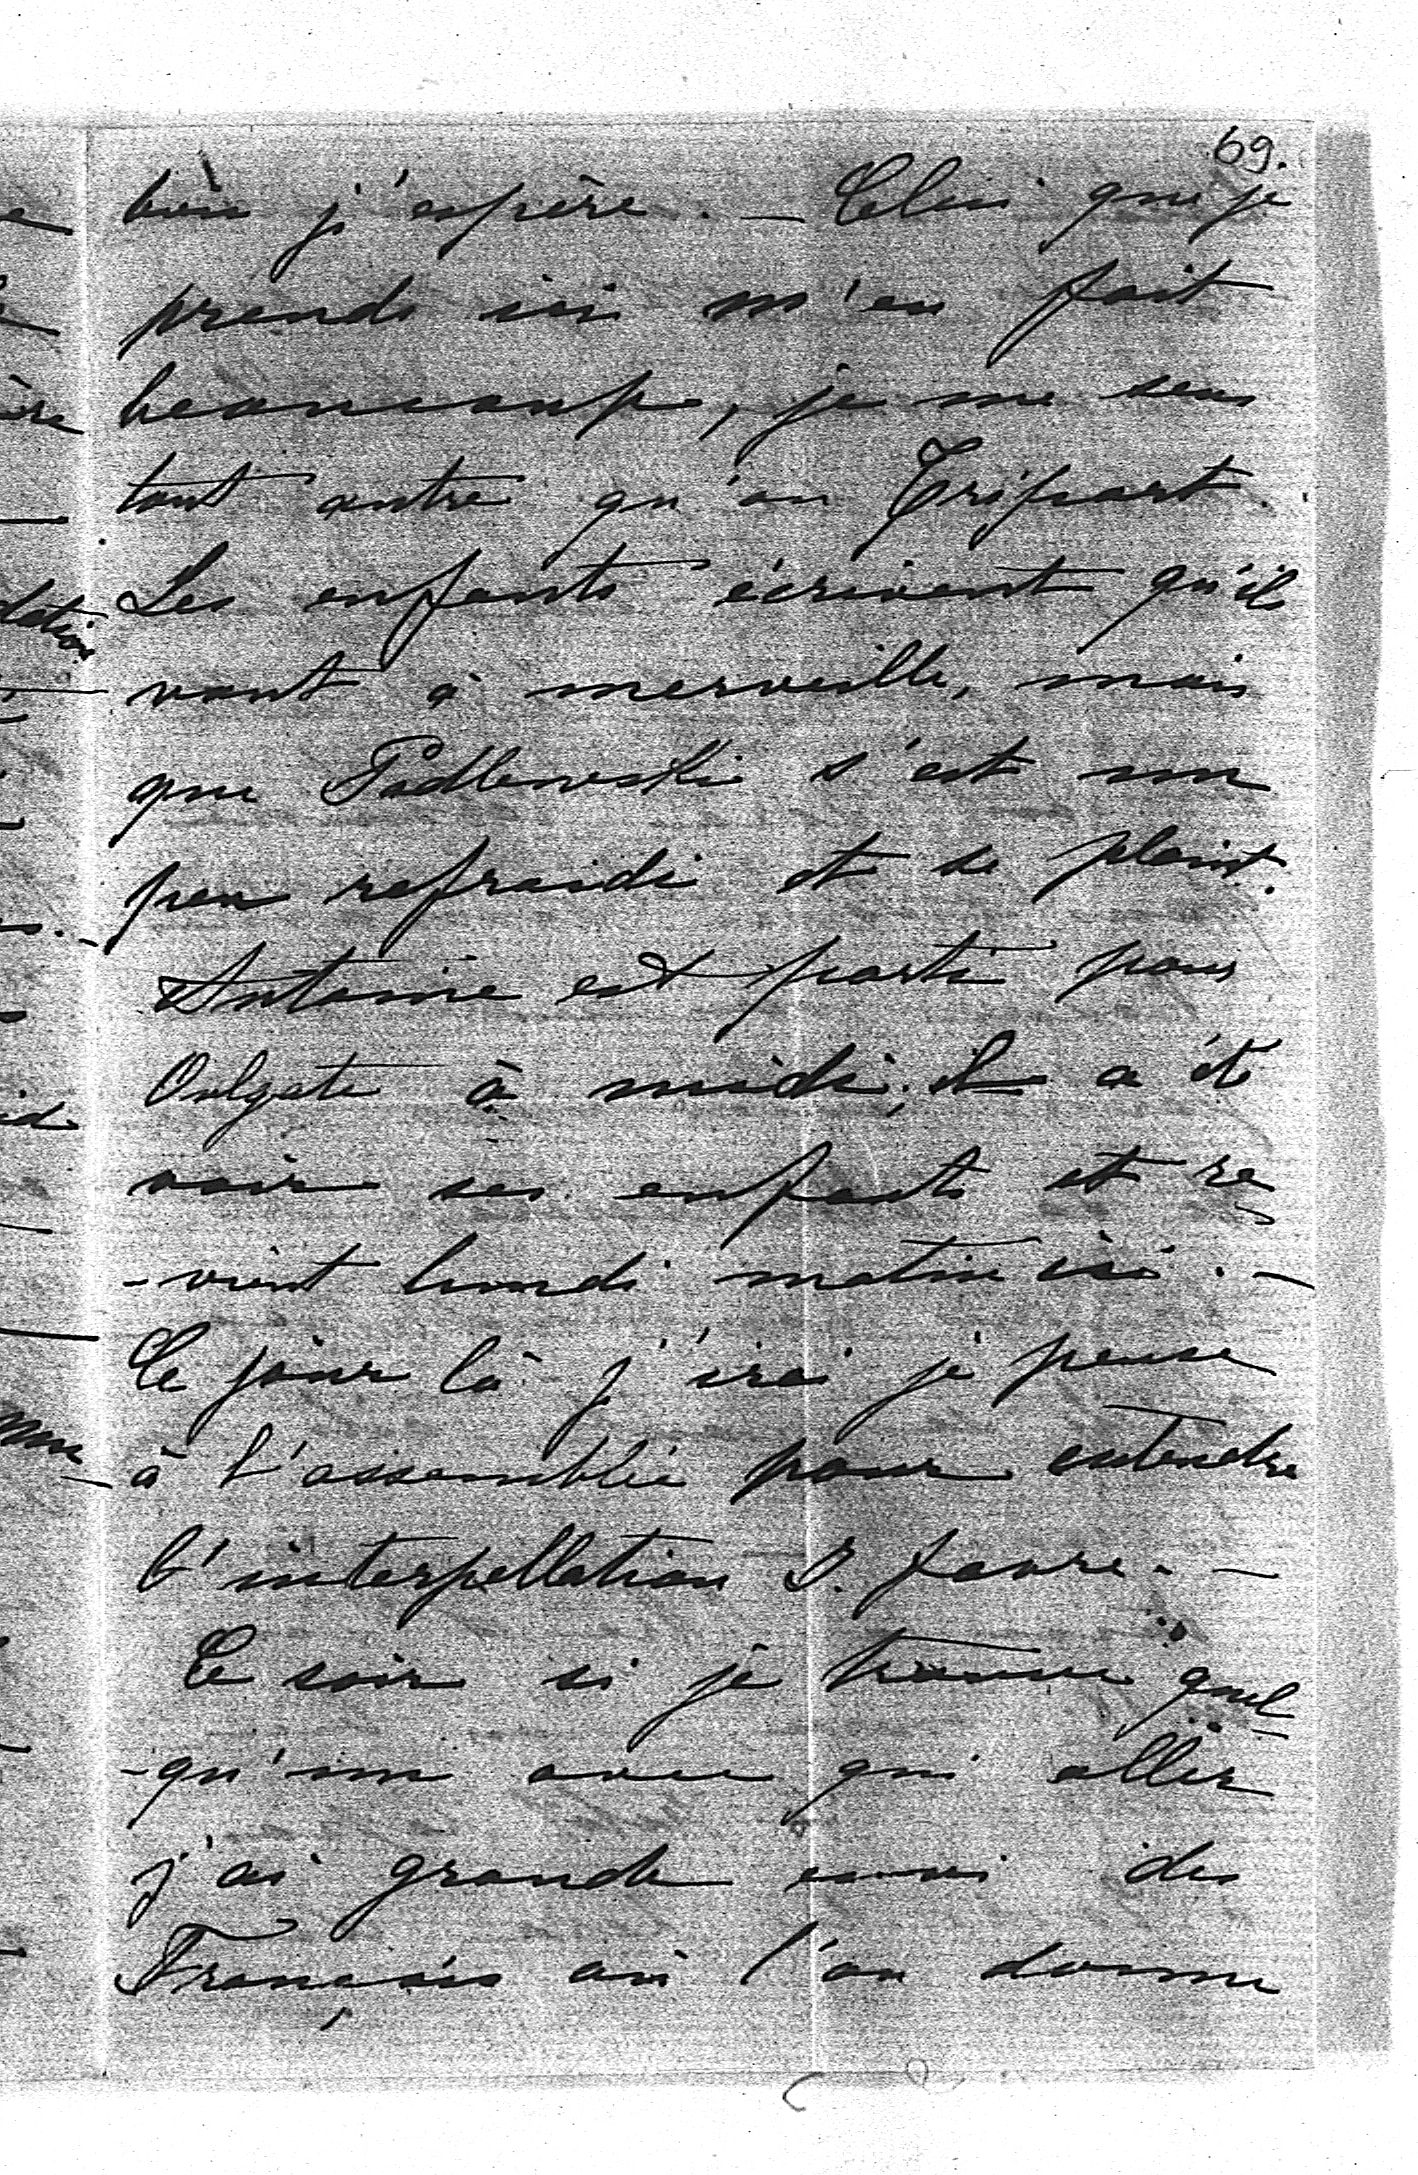 69.
bien j'espère. — Celui que je
prends ici m'en fait
beaucoup, je me sens
tout autre qu'au Tréport.
Les enfants écrivent qu'ils
vont à merveille, mais
que Padlewski s'est un
peu refroidi et se plaint.
Antoine est parti pour
à midi, il a été
voir ses enfants et re
-vient lundi matin ici. —
Ce jour là j'irai je pense
à l'assemblée pour entendre
l'interpellation J. favre. —
Ce soir si je trouve quel
-qu'un avec qui aller
j'ai grande envie des
Français où l'on donne